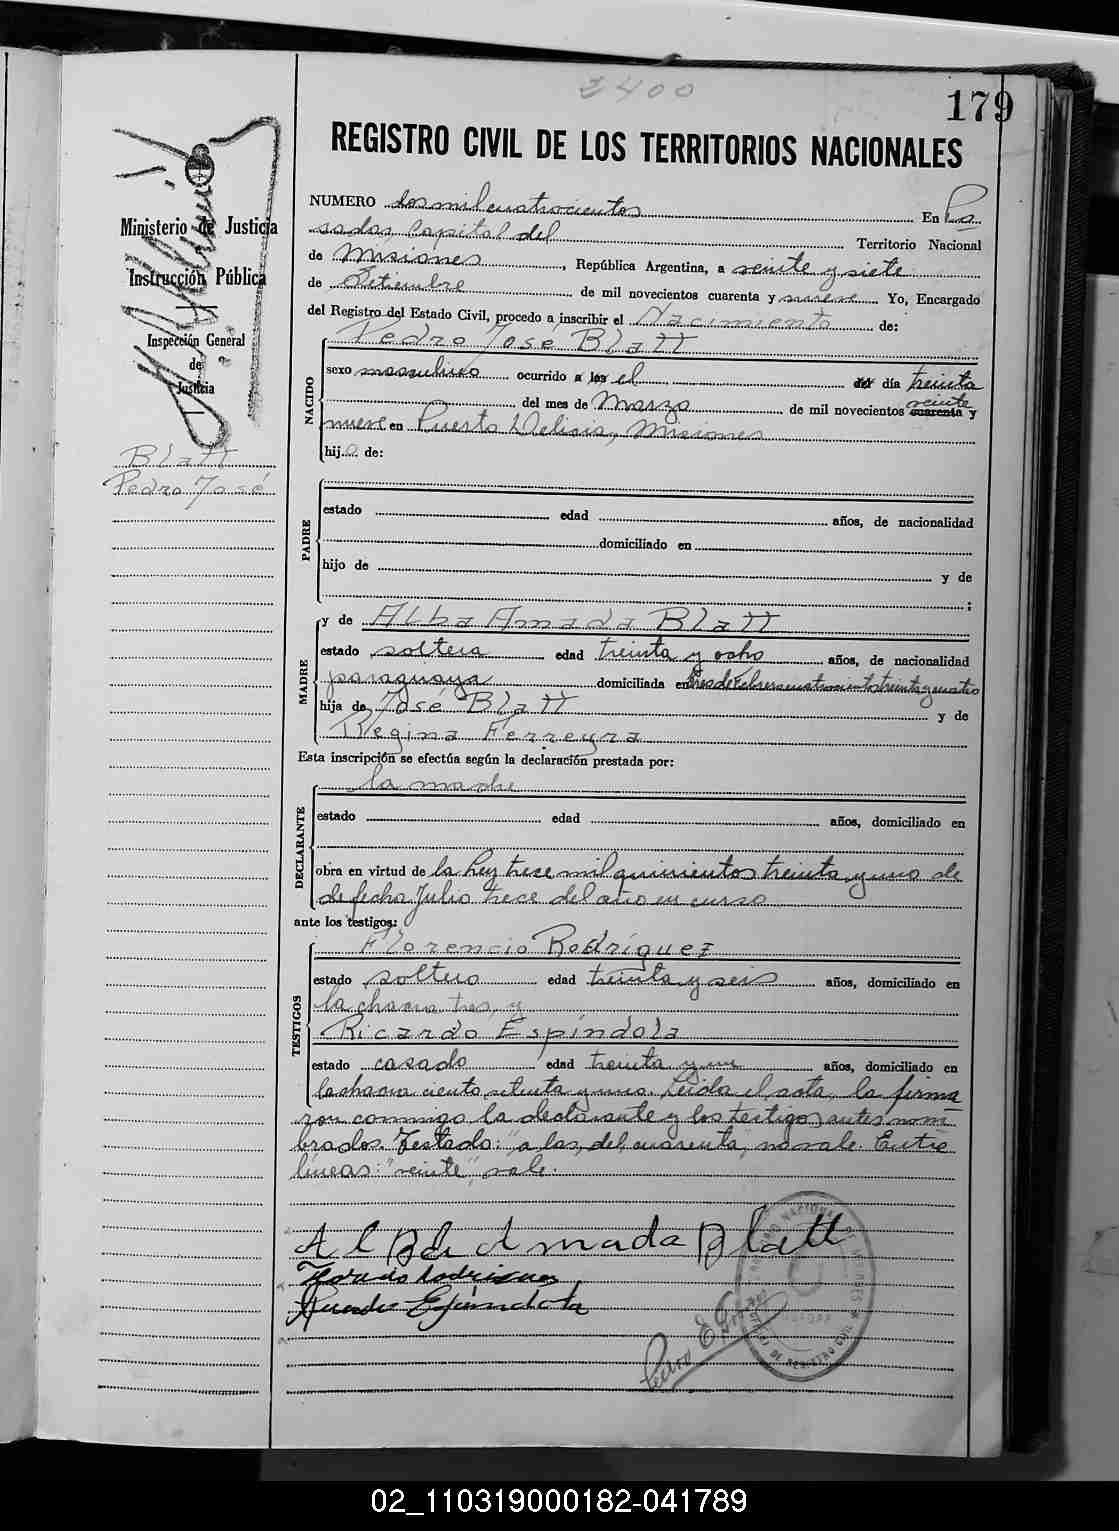 2400
179
REGISTRO CIVIL DE LOS TERRITORIOS NACIONALES
Ministerio de Justicia
e
Instrucción Pública
Inspección General
de
Justicia
Blatt
Pedro José
NUMERO dos mil cuatrocientos En Po
sadas, Capital del Territorio Nacional
de Misiones, República Argentina, a veinte y siete
de Setiembre de mil novecientos cuarenta y nueve Yo, Encargado
del Registro del Estado Civil, procedo a inscribir el Nacimiento de:
NACIDO
Pedro José Blatt
sexo masculino ocurrido a las el del día treinta
del mes de Marzo de mil novecientos cuarenta veinte y
nueve en Puerto Delicia, Misiones
hijo de:
PADRE
estado edad años, de nacionalidad
domiciliado en
hijo de y de
;
MADRE
y de Alba Amada Blatt
estado soltera edad treinta y ocho años, de nacionalidad
paraguaya domiciliada en tres de Febrero cuatrocientos treinta y cuatro
hija de José Blatt y de
Regina Ferreyra
Esta inscripción se efectúa según la declaración prestada por:
DECLARANTE
la madre
estado edad años, domiciliado en
obra en virtud de la Ley trece mil quinientos treinta y uno de
de fecha Julio trece del año en curso
ante los testigos:
TESTIGOS
Florencio Rodríguez
estado soltero edad treinta y seis años, domiciliado en
la chacra tres, y
Ricardo Espíndola
estado casado edad treinta y un años, domiciliado en
la chacra ciento setenta y uno. Leída el acta, la firma
ron conmigo la declarante y los testigos antes nom
brados. Testado: "a las, del, cuarenta", no vale. Entre
líneas: "veinte", vale.
Alba Amada Blatt
Florencio Rodriguez
Ricardo Espíndola
02_110319000182-041789